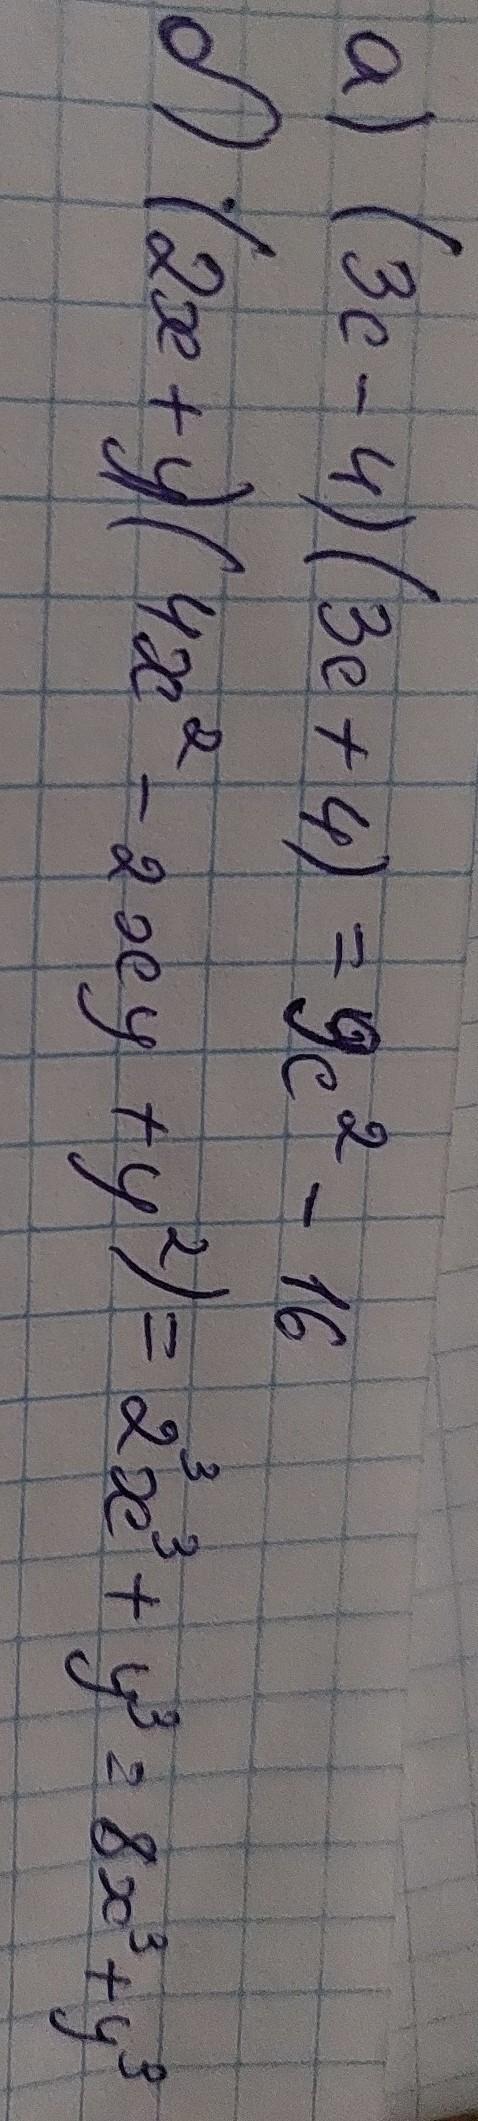 а) (3c - 4)(3c + 4) = 9c² - 16
б) (2x + y)(4x² - 2xy + y²) = 2³x³ + y³ = 8x³ + y³